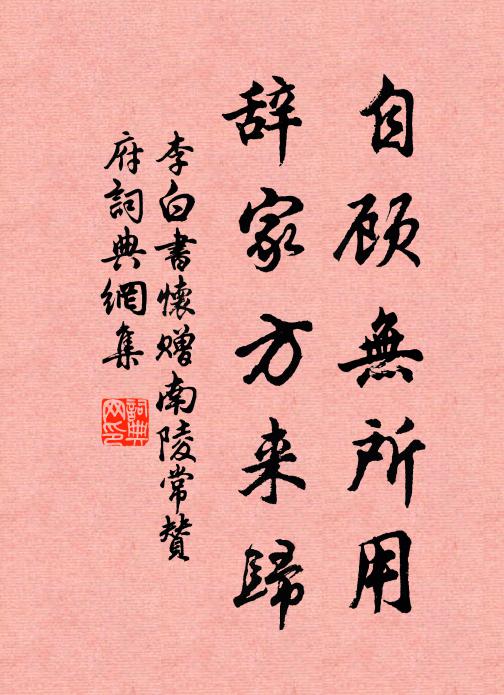 自顾無所用
辞家方来歸
李白書懷贈南陵常贊
府詞典網集
詞典
网印